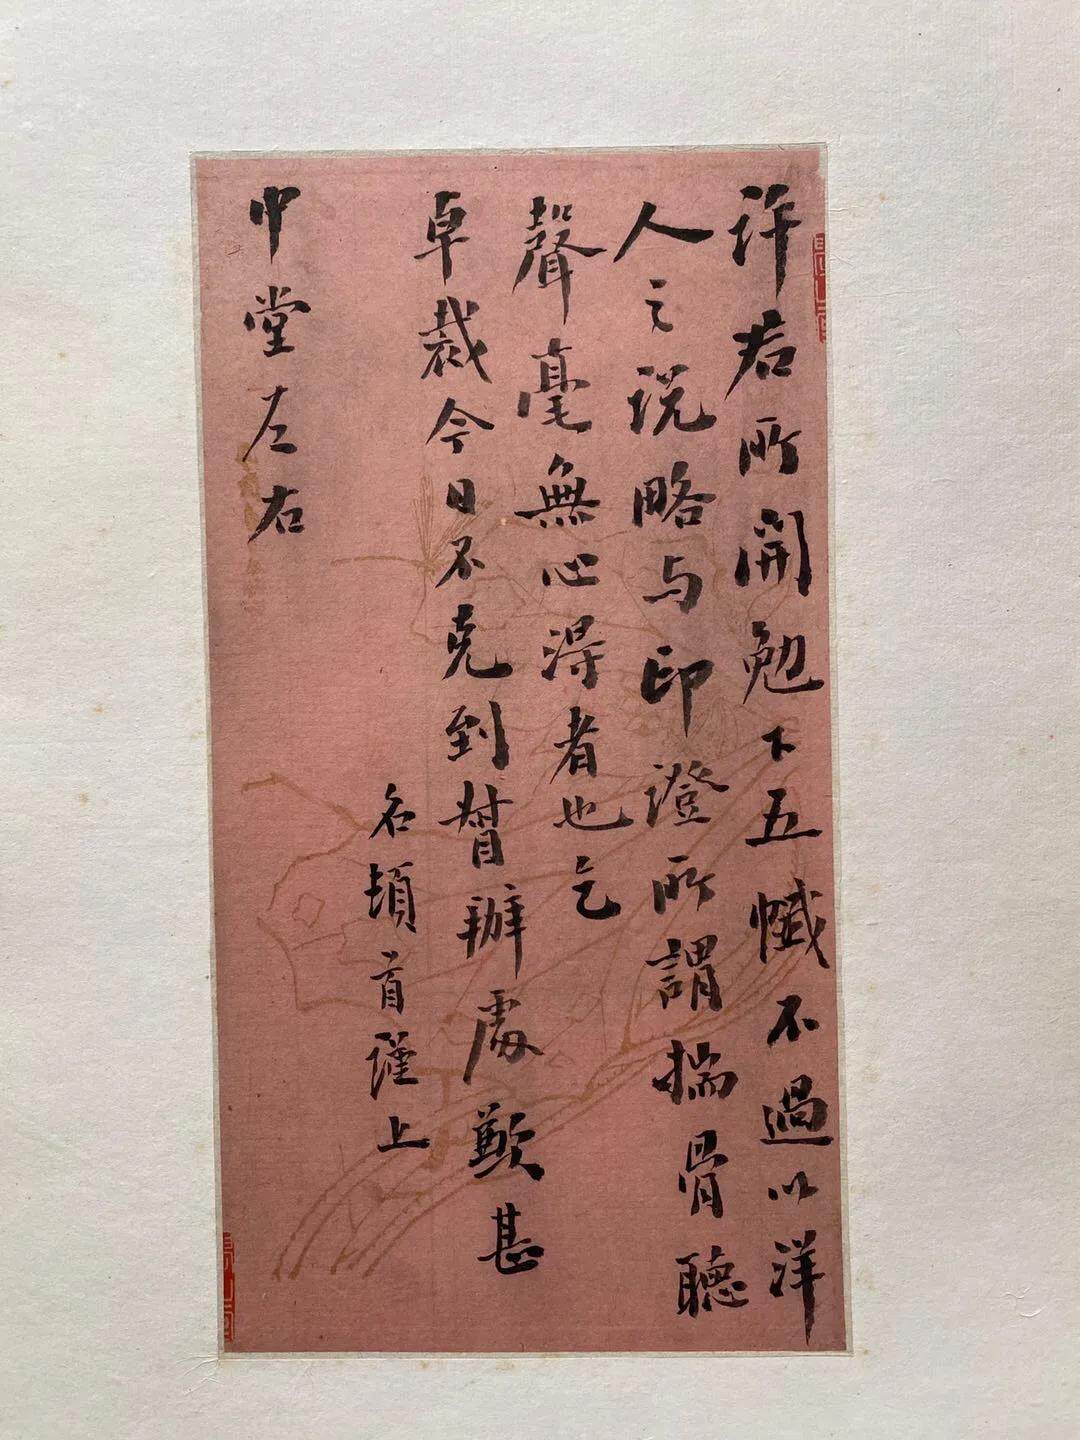 許君所開勉下五懺不過以洋
人之說略与印證所謂揣骨聽
聲毫無心得者也乞
卓裁今日不克到督辦處歉甚
名頓首謹上
中堂左右